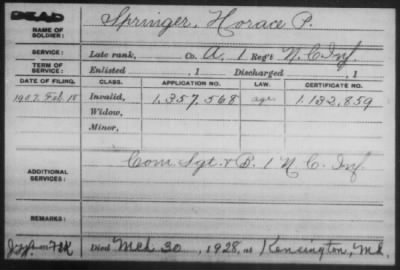 DEAD
NAME OF SOLDIER: Springer, Horace P.
SERVICE: Late rank, Co. A, 1 Reg't N.C. Inf.
TERM OF SERVICE: Enlisted , 1 Discharged , 1
DATE OF FILING. CLASS. APPLICATION NO. LAW. CERTIFICATE NO.
1907 Feb. 18 Invalid, 1.357.568 age 1.132.859
Widow,
Minor,
ADDITIONAL SERVICES: Com. Sgt. & B. 1 N.C. Inf
REMARKS:
Died Mch 30, 1928, at Kensington, Md.